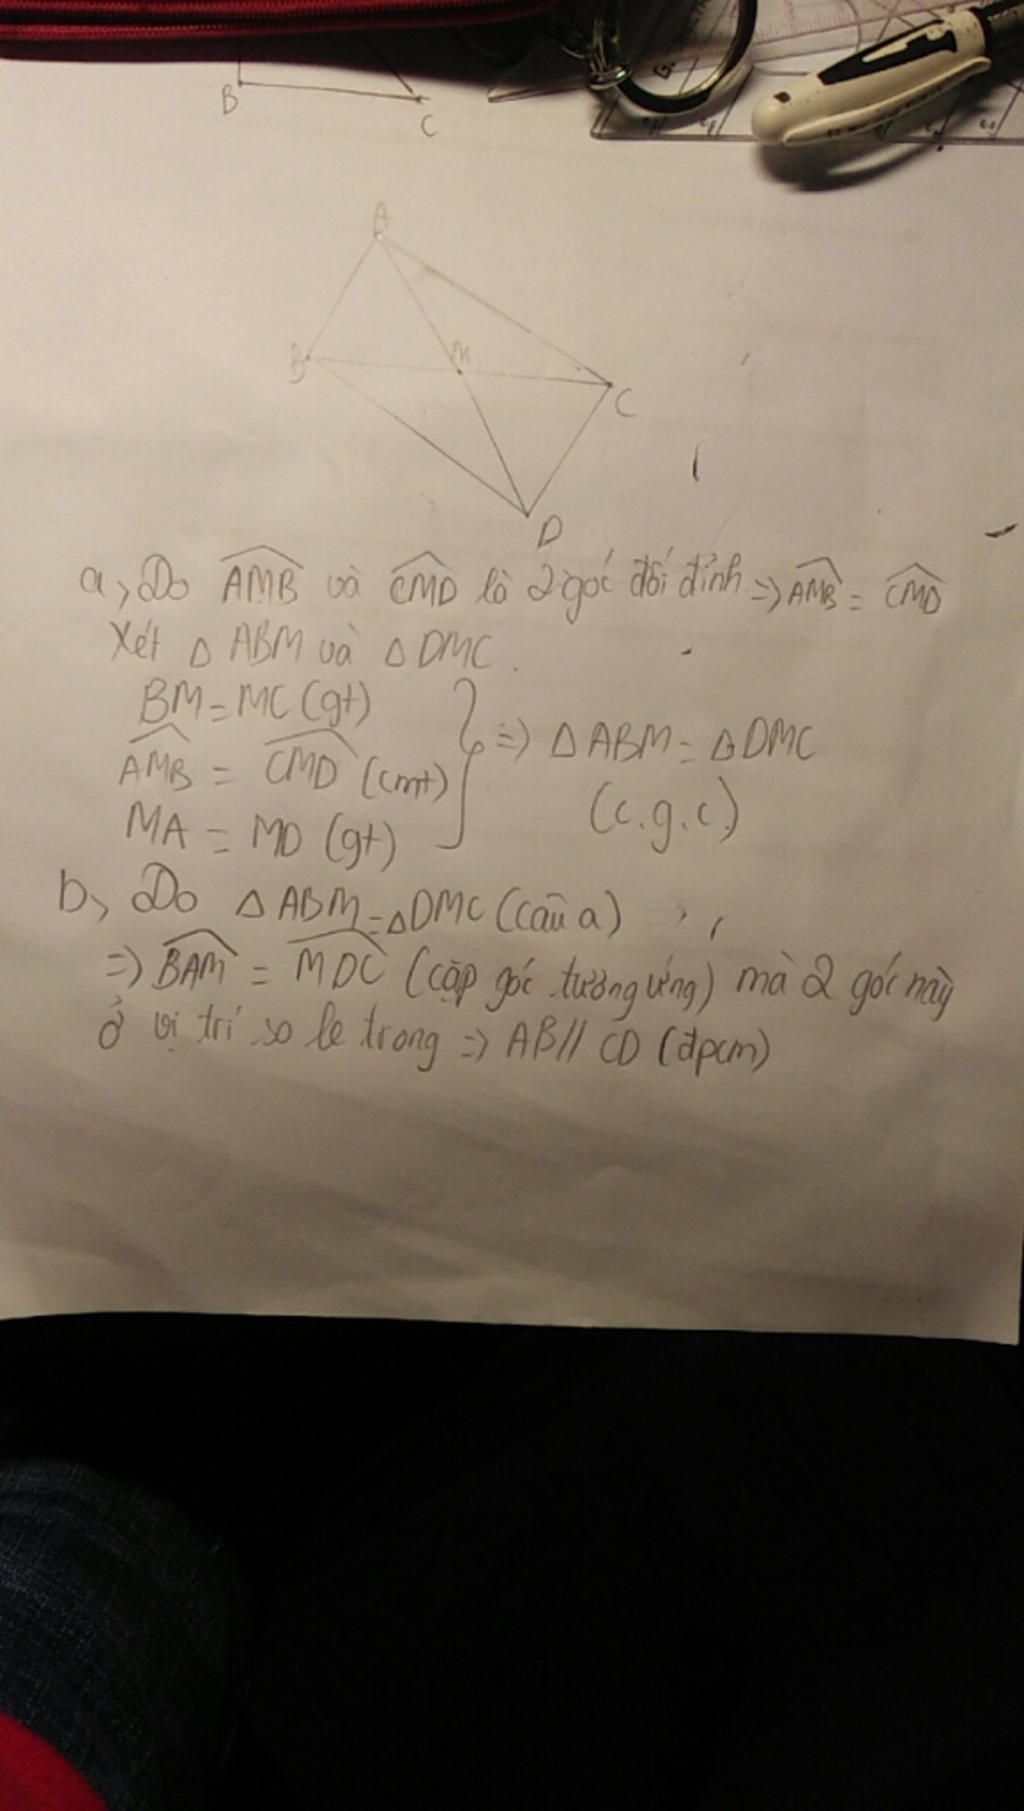 B
C
A
B
M
C
D
a, Do \widehat{AMB} và \widehat{CMD} là 2 góc đối đỉnh => \widehat{AMB} = \widehat{CMD}
Xét △ ABM và △ DMC.
BM = MC (gt)
\widehat{AMB} = \widehat{CMD} (cmt) } => △ ABM = △ DMC
MA = MD (gt)
(c.g.c)
b, Do △ ABM = △ DMC (câu a)
=> \widehat{BAM} = \widehat{MDC} (cặp góc tương ứng) mà 2 góc này
ở vị trí so le trong => AB // CD (đpcm)